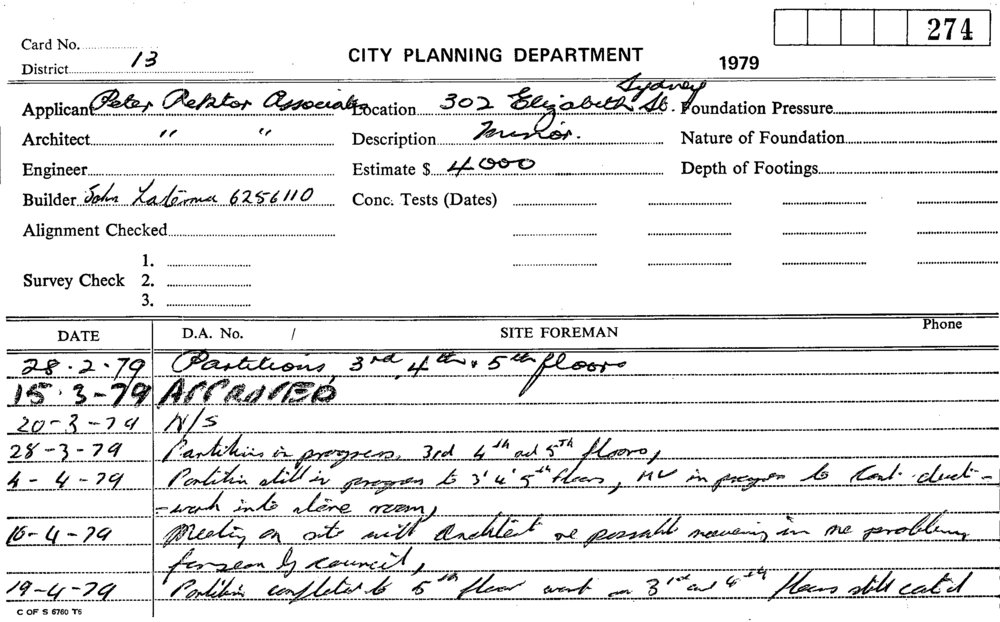 274
Card No.
District 13
CITY PLANNING DEPARTMENT
1979
Applicant Peter Associates
Location 302 Elizabeth St. Sydney
Foundation Pressure
Architect " "
Description Minor.
Nature of Foundation
Engineer
Estimate $ 4000
Depth of Footings
Builder John 6256110
Conc. Tests (Dates)
Alignment Checked
Survey Check 1.
2.
3.
DATE D.A. No. / SITE FOREMAN Phone
28.2.79 Partitions, 3rd, 4th & 5th floors
15.3-79 APPROVED
20-3-79 N/S
28-3-79 Partitions in progress. 3rd 4th and 5th floors,
4-4-79 Partition still in progress to 3' 4' 5th floors, in progress to duct-
-work into store room,
16-4-79 Meeting on site with Architect re possible moving in no problems
by council,
19-4-79 Partition completed to 5th floor work on 3rd and 4th floors still
C OF S 6760 T6